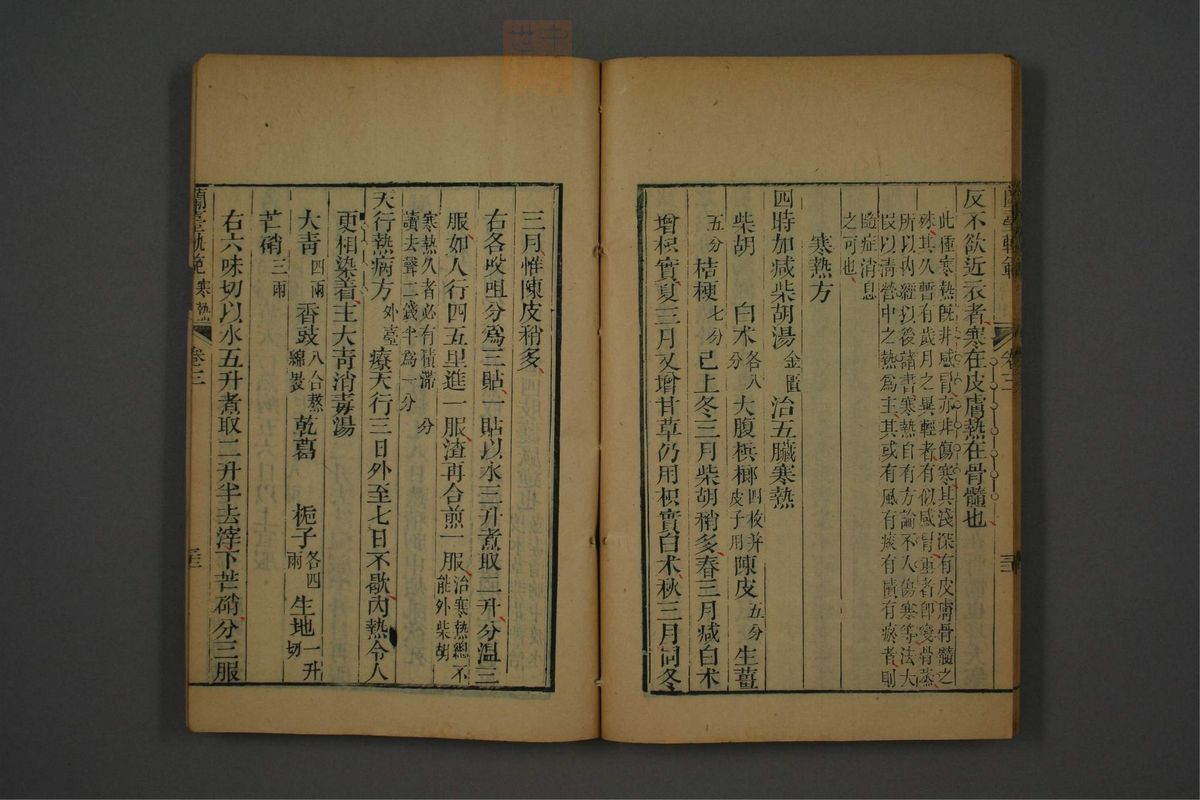 反不欲近衣者寒在皮膚熱在骨髓也
此種寒熱既非感冒亦非傷寒其淺深有皮膚骨髓之
殊其久暫有歲月之異輕者有似感冒重者即變骨蒸
所以內經以後諸書寒熱自有方論不入傷寒等法大
段以清營中之熱為主其或有風有痰有積有瘀者則
隨症消息
之可也
寒熱方
四時加減柴胡湯 金匱 治五臟寒熱
柴胡 白朮 各八分 大腹檳榔 四枚并皮子用 陳皮 五分 生薑
五分 桔梗 七分 已上冬三月柴胡稍多春三月減白朮
增枳實夏三月又增甘草仍用枳實白朮秋三月同冬
蘭臺軌範
卷三
三月惟陳皮稍多
右各㕮咀分為三貼一貼以水三升煮取二升分溫三
服如人行四五里進一服渣再合煎一服 治寒熱總不能外柴胡
寒熱久者必有積滯 分
讀去聲二錢半為一分
天行熱病方 外臺 療天行三日外至七日不歇內熱令人
更相染着主大青消毒湯
大青 四兩 香豉 八合熬綿裹 乾葛 梔子 各四兩 生地 一升切
芒硝 三兩
右六味切以水五升煮取二升半去滓下芒硝分三服
蘭臺軌範 寒熱
卷三